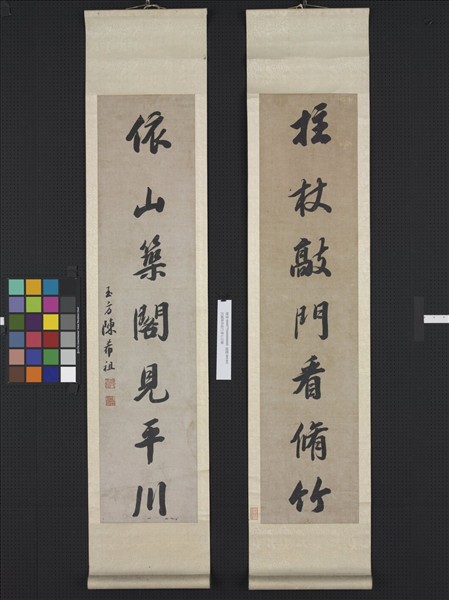 拄杖敲門看脩竹
依山築閣見平川
玉方陳希祖